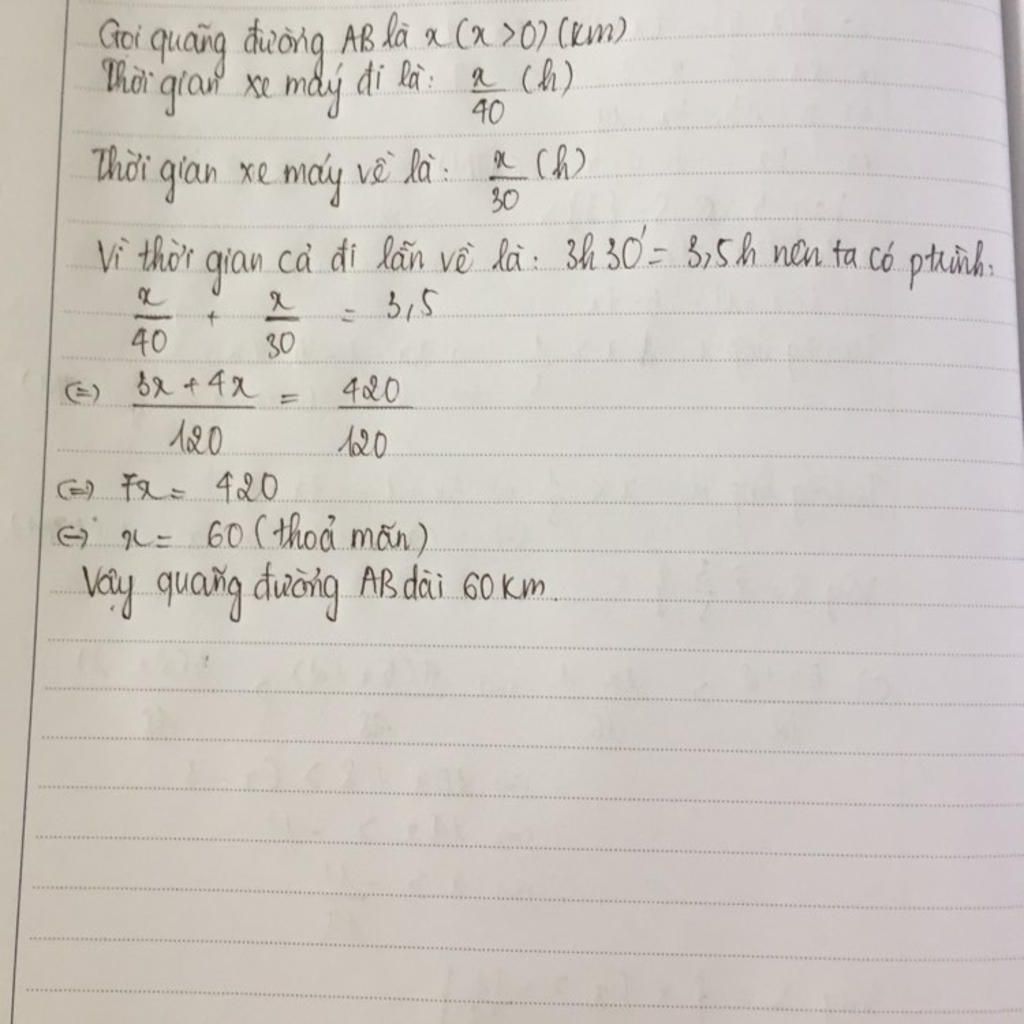 Gọi quãng đường AB là x (x > 0) (km)
Thời gian xe máy đi là: x/40 (h)
Thời gian xe máy về là: x/30 (h)
Vì thời gian cả đi lẫn về là: 3h30' = 3,5h nên ta có ptrình:
x/40 + x/30 = 3,5
(=) (3x + 4x)/120 = 420/120
(=) 7x = 420
(=) x = 60 (thoả mãn)
Vậy quãng đường AB dài 60 km.